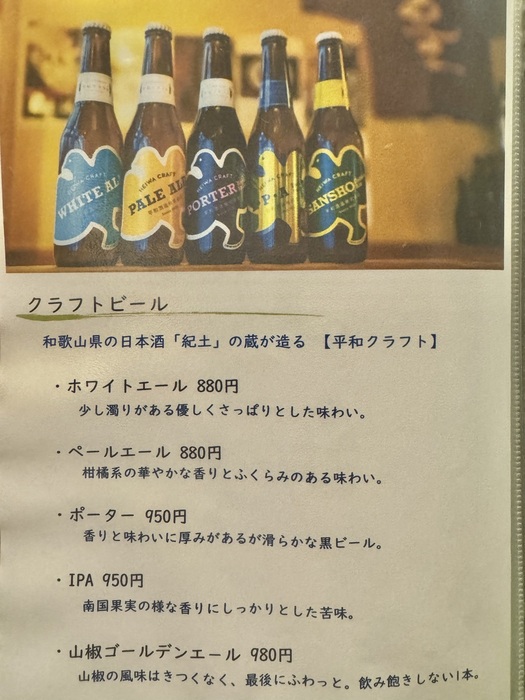 HEIWA CRAFT
WHITE ALE
HEIWA CRAFT
PALE ALE
HEIWA CRAFT
PORTER
HEIWA CRAFT
IPA
HEIWA CRAFT
SANSHO
クラフトビール
和歌山県の日本酒「紀土」の蔵が造る 【平和クラフト】
・ホワイトエール 880円
少し濁りがある優しくさっぱりとした味わい。
・ペールエール 880円
柑橘系の華やかな香りとふくらみのある味わい。
・ポーター 950円
香りと味わいに厚みがあるが滑らかな黒ビール。
・IPA 950円
南国果実の様な香りにしっかりとした苦味。
・山椒ゴールデンエール 980円
山椒の風味はきつくなく、最後にふわっと。飲み飽きしない1本。